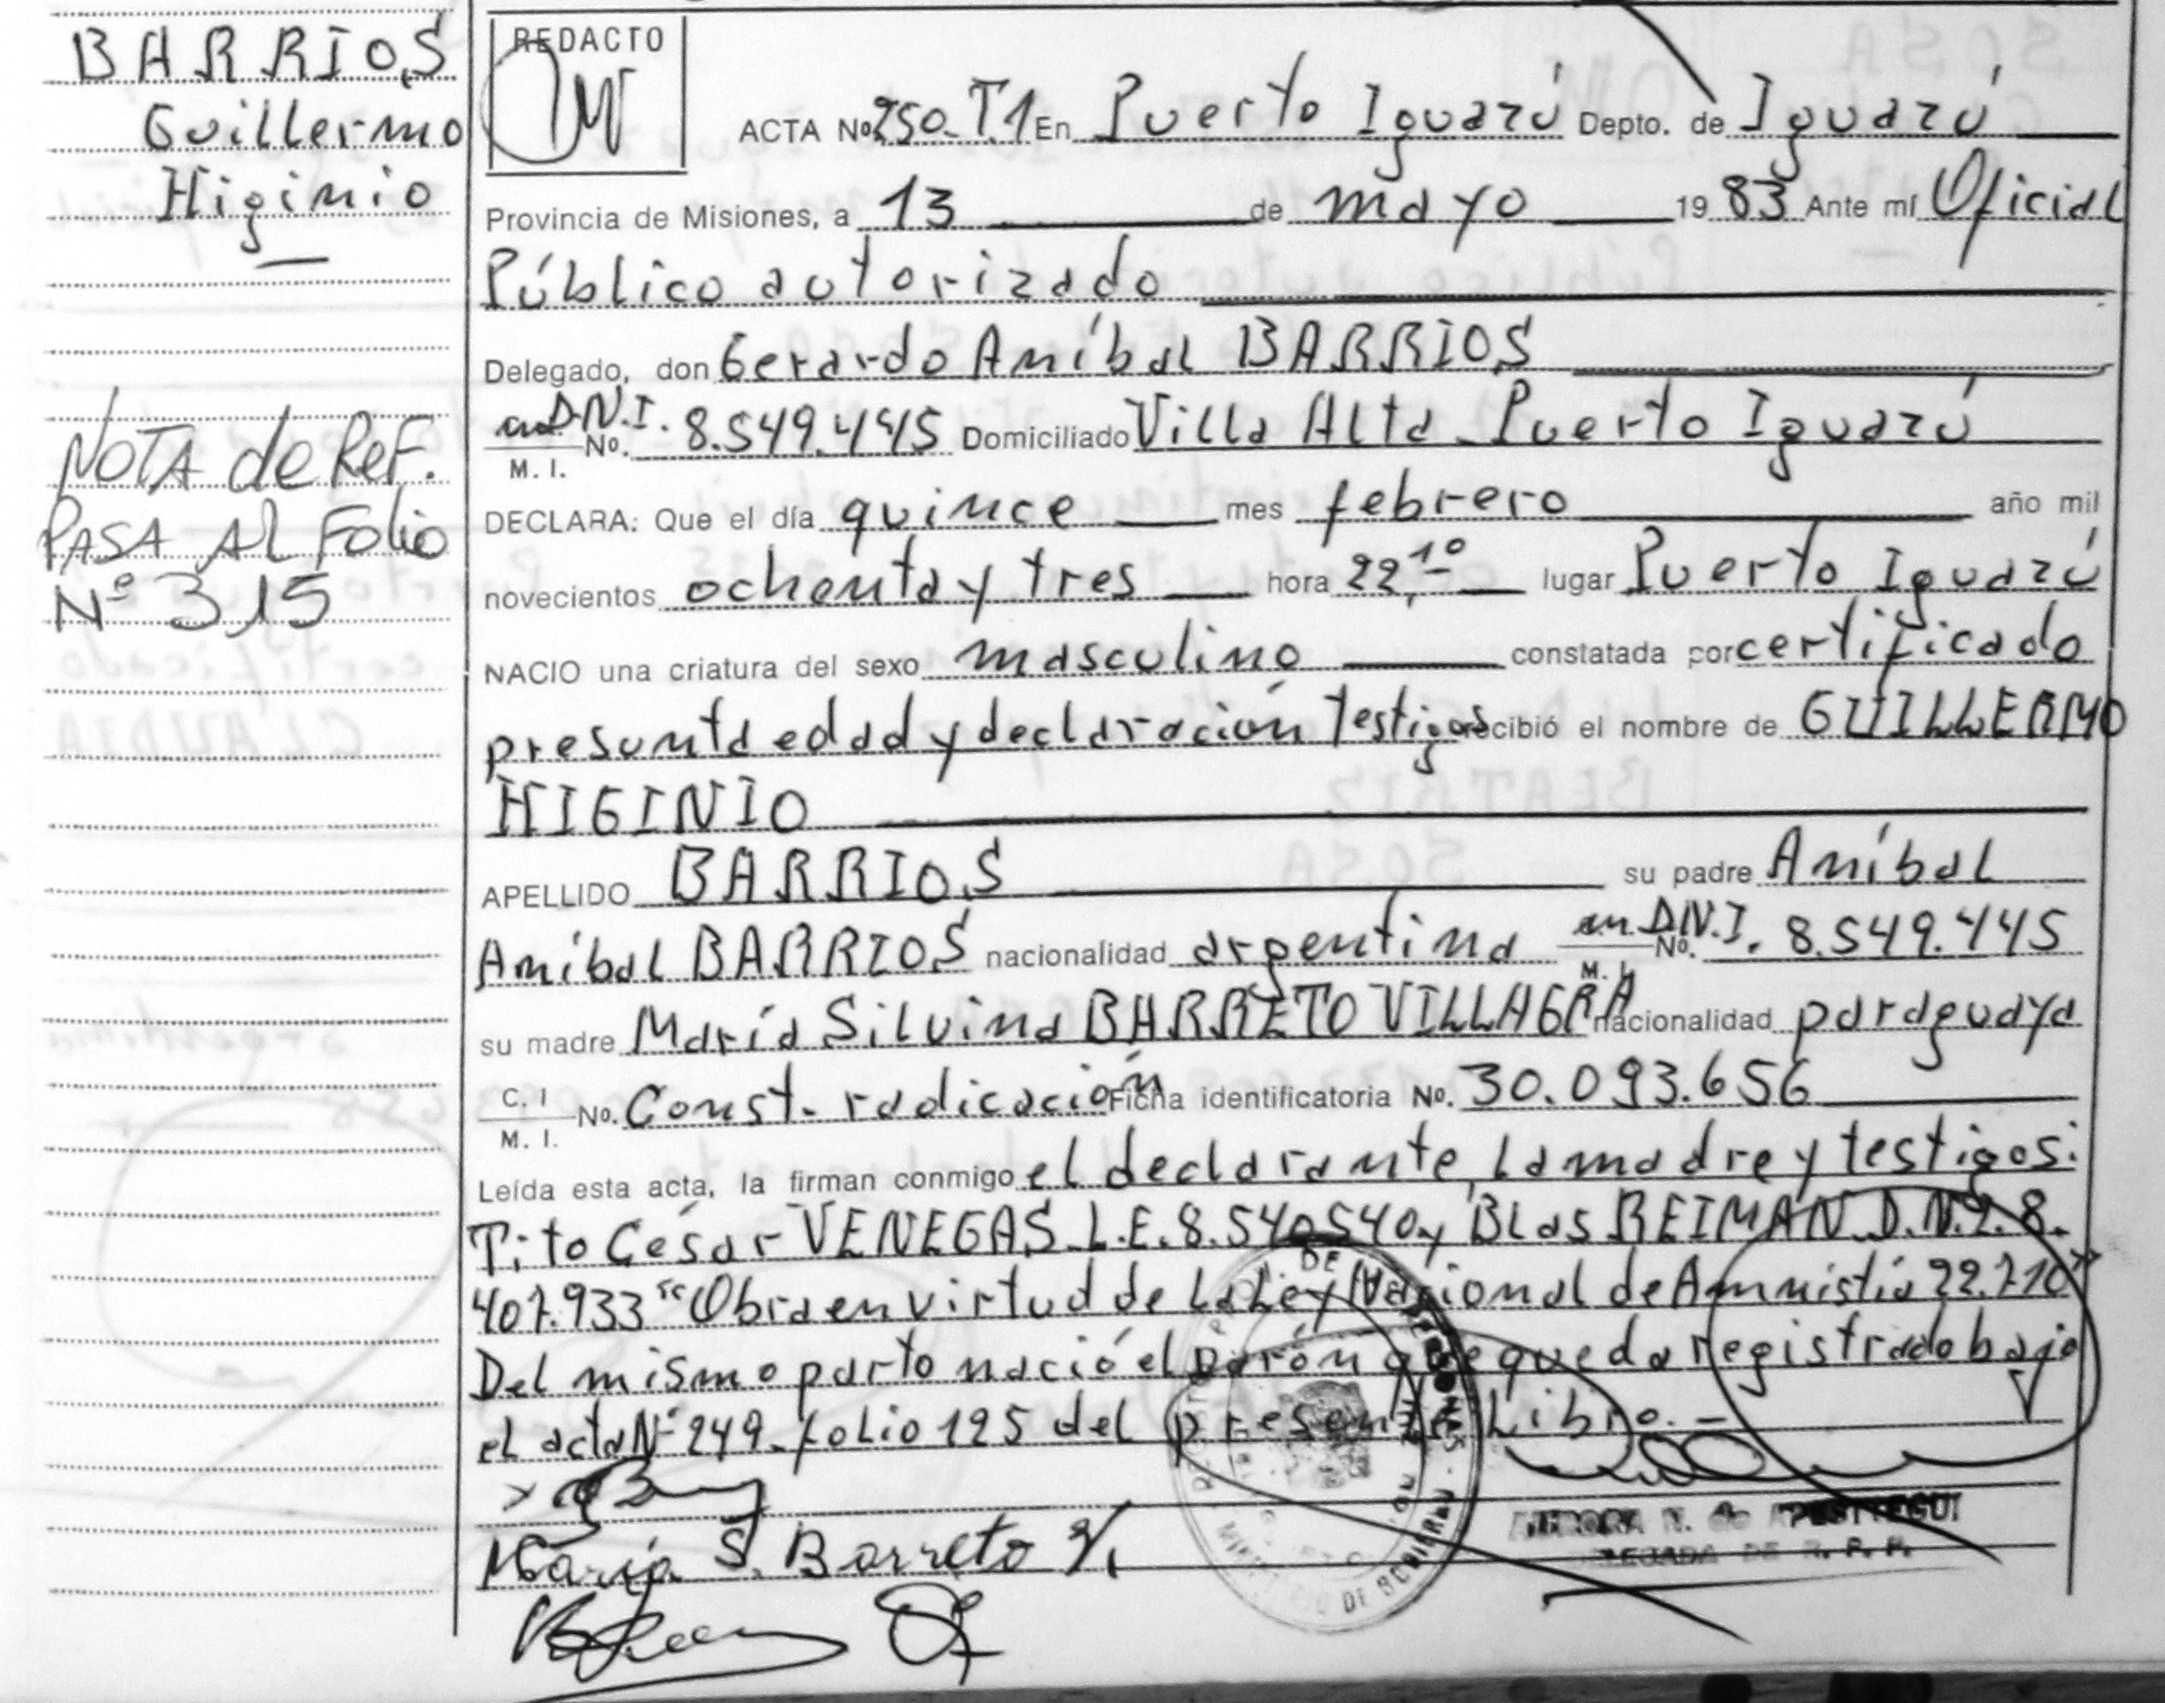 BARRIOS
Guillermo
Higinio
NOTA de ReF.
PASA Al Folio
Nº 315
REDACTO
ACTA Nº 250.T1 En Puerto Iguazú Depto. de Iguazú
Provincia de Misiones, a 13 de mayo 19 83 Ante mí Oficial
Público autorizado
Delegado, don Gerardo Aníbal BARRIOS
D.N.I. No. 8.549.445 Domiciliado Villa Alta Puerto Iguazú
M. I.
DECLARA: Que el día quince mes febrero año mil
novecientos ochenta y tres hora 22,10 lugar Puerto Iguazú
NACIO una criatura del sexo masculino constatada por certificado
presunta edad y declaración testigos recibió el nombre de GUILLERMO
HIGINIO
APELLIDO BARRIOS su padre Aníbal
Aníbal BARRIOS nacionalidad argentina D.N.I. No. 8.549.445
M. I.
su madre María Silvina BARRETO VILLAGRA nacionalidad paraguaya
C. I
M. I. No. Const. radicación Ficha identificatoria No. 30.093.656
Leída esta acta, la firman conmigo el declarante, la madre y testigos:
Tito César VENEGAS L.E. 8.540540 y Blas REIMAN D.N.I. 8.
407.933 "Obra en virtud de la Ley Nacional de Amnistía 22.710"
Del mismo parto nació el varón que queda registrado bajo
el acta Nº 249 folio 125 del presente Libro.-
María S. Barreto V.
DE
MINISTERIO DE GOBIERNO